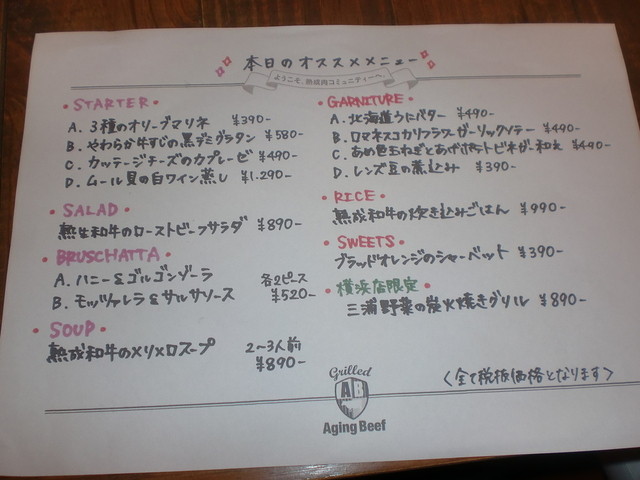 本日のオススメメニュー
ようこそ、熟成肉コミュニティーへ。
・STARTER・
A. 3種のオリーブマリネ ¥390-
B. やわらか牛すじの黒デミグラタン ¥580-
C. カッテージチーズのカプレーゼ ¥490-
D. ムール貝の白ワイン蒸し ¥1.290-
・SALAD・
熟生和牛のローストビーフサラダ ¥890-
・BRUSCHATTA・
A. ハニー&ゴルゴンゾーラ 各2ピース
B. モッツァレラ&サルサソース ¥520-
・SOUP・
熟成和牛のメリメロスープ 2~3人前
¥890-
・GARNITURE・
A. 北海道うにバター ¥490-
B. ロマネスコカリフラワーガーリックソテー ¥490-
C. あめ色玉ねぎとあげポテトビネガー和え ¥490-
D. レンズ豆の煮込み ¥390-
・RICE・
熟成和牛の炊き込みごはん ¥990-
・SWEETS・
ブラッドオレンジのシャーベット ¥390-
・横浜店限定・
三浦野菜の炭火焼きグリル ¥890-
<全て税抜価格となります>
Grilled
AB
Aging Beef